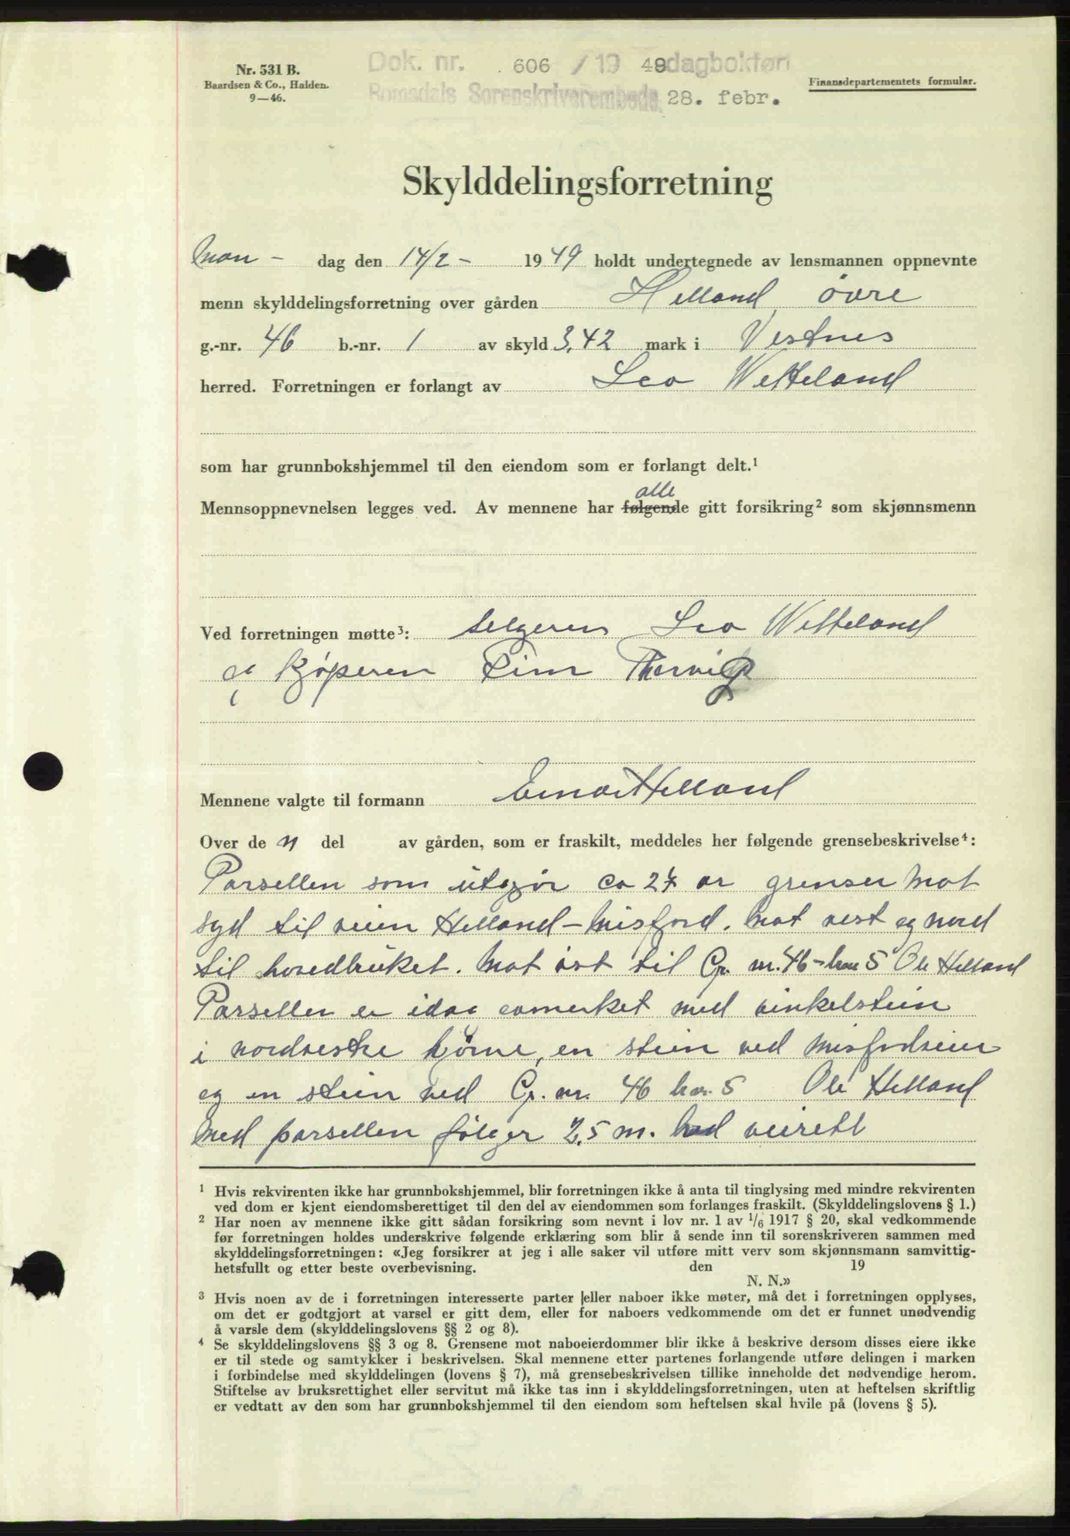 Nr. 531 B.
Baardsen & Co., Halden.
9—46.
Dok. nr. 606 / 19 49 dagbokført
Romsdals Sorenskriverembede 28. febr.
Finansdepartementets formular.
Skylddelingsforretning
Man- dag den 14/2- 1949 holdt undertegnede av lensmannen oppnevnte
menn skylddelingsforretning over gården Helland øvre
g.-nr. 46 b.-nr. 1 av skyld 3,42 mark i Vestnes
herred. Forretningen er forlangt av Leo Wetteland
som har grunnbokshjemmel til den eiendom som er forlangt delt.¹
alle
Mennsoppnevnelsen legges ved. Av mennene har følgende gitt forsikring² som skjønnsmenn
Ved forretningen møtte³: selgeren Leo Wetteland
og kjøperen Finn
Mennene valgte til formann Einar Helland
Over de n del av gården, som er fraskilt, meddeles her følgende grensebeskrivelse⁴:
Parsellen som utgjør ca 24 ar grenser mot
syd til veien Helland-Misfjord. Mot vest og nord
til hovedbruket. Mot øst til Gr. nr. 46 - bnr 5 Ole Helland
Parsellen er idag avmerket med vinkelstein
i nordvestre hjørne, en stein ved Misfjordveien
og en stein ved Gr. nr. 46 bnr. 5 Ole Helland
Med parsellen følger 2,5 m. bred veirett
¹ Hvis rekvirenten ikke har grunnbokshjemmel, blir forretningen ikke å anta til tinglysing med mindre rekvirenten
ved dom er kjent eiendomsberettiget til den del av eiendommen som forlanges fraskilt. (Skylddelingslovens § 1.)
² Har noen av mennene ikke gitt sådan forsikring som nevnt i lov nr. 1 av 1/6 1917 § 20, skal vedkommende
før forretningen holdes underskrive følgende erklæring som blir å sende inn til sorenskriveren sammen med
skylddelingsforretningen: «Jeg forsikrer at jeg i alle saker vil utføre mitt verv som skjønnsmann samvittig-
hetsfullt og etter beste overbevisning. den 19
N. N.»
³ Hvis noen av de i forretningen interesserte parter eller naboer ikke møter, må det i forretningen opplyses,
om det er godtgjort at varsel er gitt dem, eller for naboers vedkommende om det er funnet unødvendig
å varsle dem (skylddelingslovens §§ 2 og 8).
⁴ Se skylddelingslovens §§ 3 og 8. Grensene mot naboeierdommer blir ikke å beskrive dersom disses eiere ikke
er til stede og samtykker i beskrivelsen. Skal mennene etter partenes forlangende utføre delingen i marken
i forbindelse med skylddelingen (lovens § 7), må grensebeskrivelsen tillike inneholde det nødvendige herom.
Stiftelse av bruksrettighet eller servitut må ikke tas inn i skylddelingsforretningen, uten at heftelsen skriftlig
er vedtatt av den som har grunnbokshjemmel til den eiendom som heftelsen skal hvile på (lovens § 5).